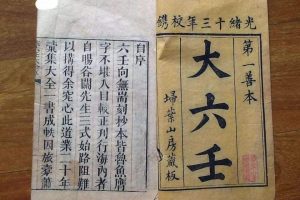 光緒十三年校鐫
第一善本
大六壬
掃葉山房藏板
自序
六壬向無耑刻抄本皆魯魚膺
字不堪人目較正刋行海內者
自暘谷閻先生三式始路阻難
以搆得余究心此道業二十年
彙集大全一書成帙因旅囊蕭